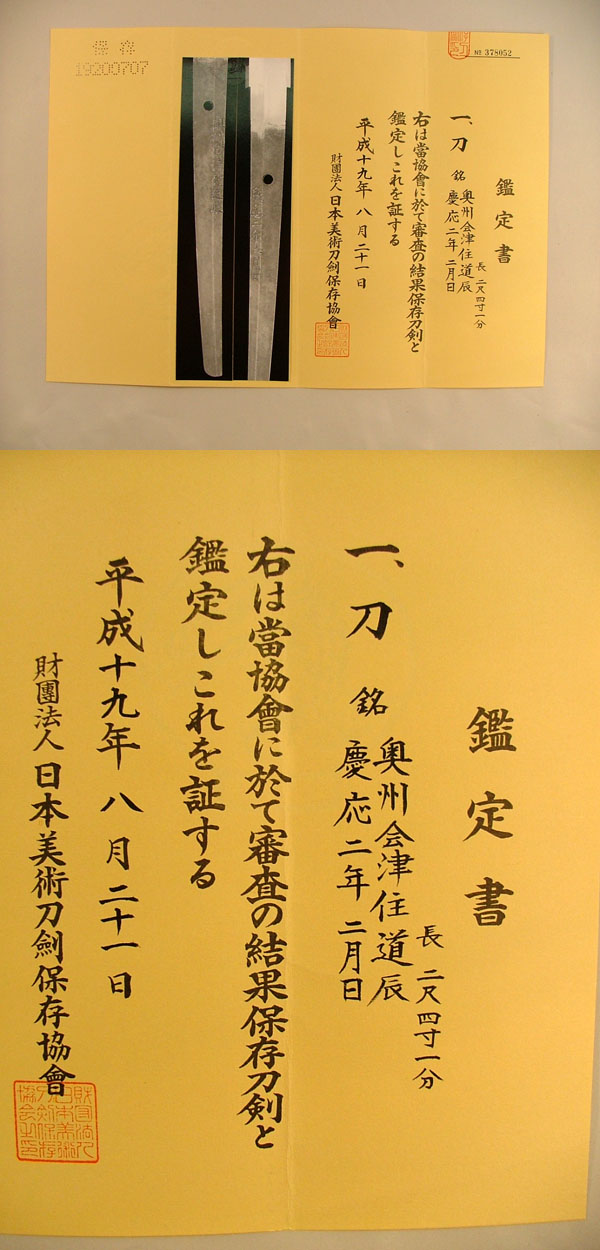 保存
19200707
№ 378052
鑑定書
一、刀 銘 奥州会津住道辰
慶応二年二月日
長 二尺四寸一分
右は當協會に於て審査の結果保存刀剣と
鑑定しこれを証する
平成十九年八月二十一日
財團法人日本美術刀劍保存協會
鑑定書
長 二尺四寸一分
一、刀 銘 奥州会津住道辰
慶応二年二月日
右は當協會に於て審査の結果保存刀剣と
鑑定しこれを証する
平成十九年八月二十一日
財團法人日本美術刀劍保存協會